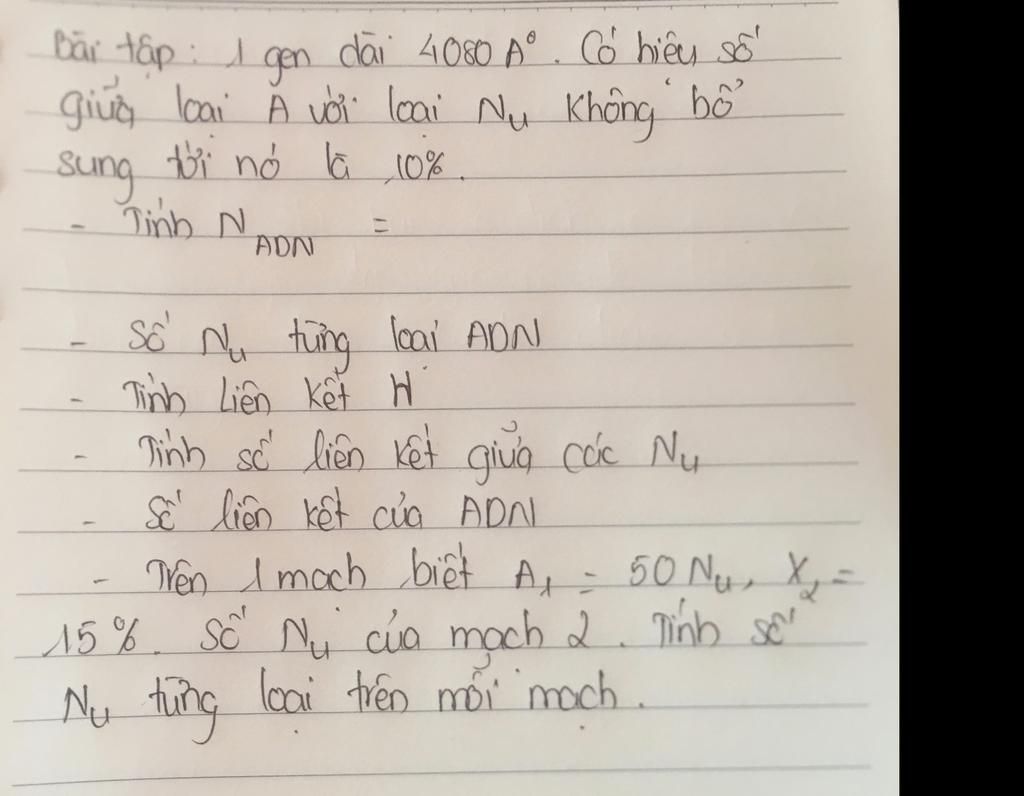 Bài tập: 1 gen dài 4080 A°. Có hiệu số
giữa loại A với loại Nu không bổ
sung tới nó là 10%.
- Tính N ADN =
- Số Nu từng loại ADN
- Tính Liên kết H
- Tính số liên kết giữa các Nu
- Số liên kết của ADN
- Trên 1 mạch biết A₁ = 50 Nu, X₂ =
15%. Số Nu của mạch 2. Tính số
Nu từng loại trên mỗi mạch.